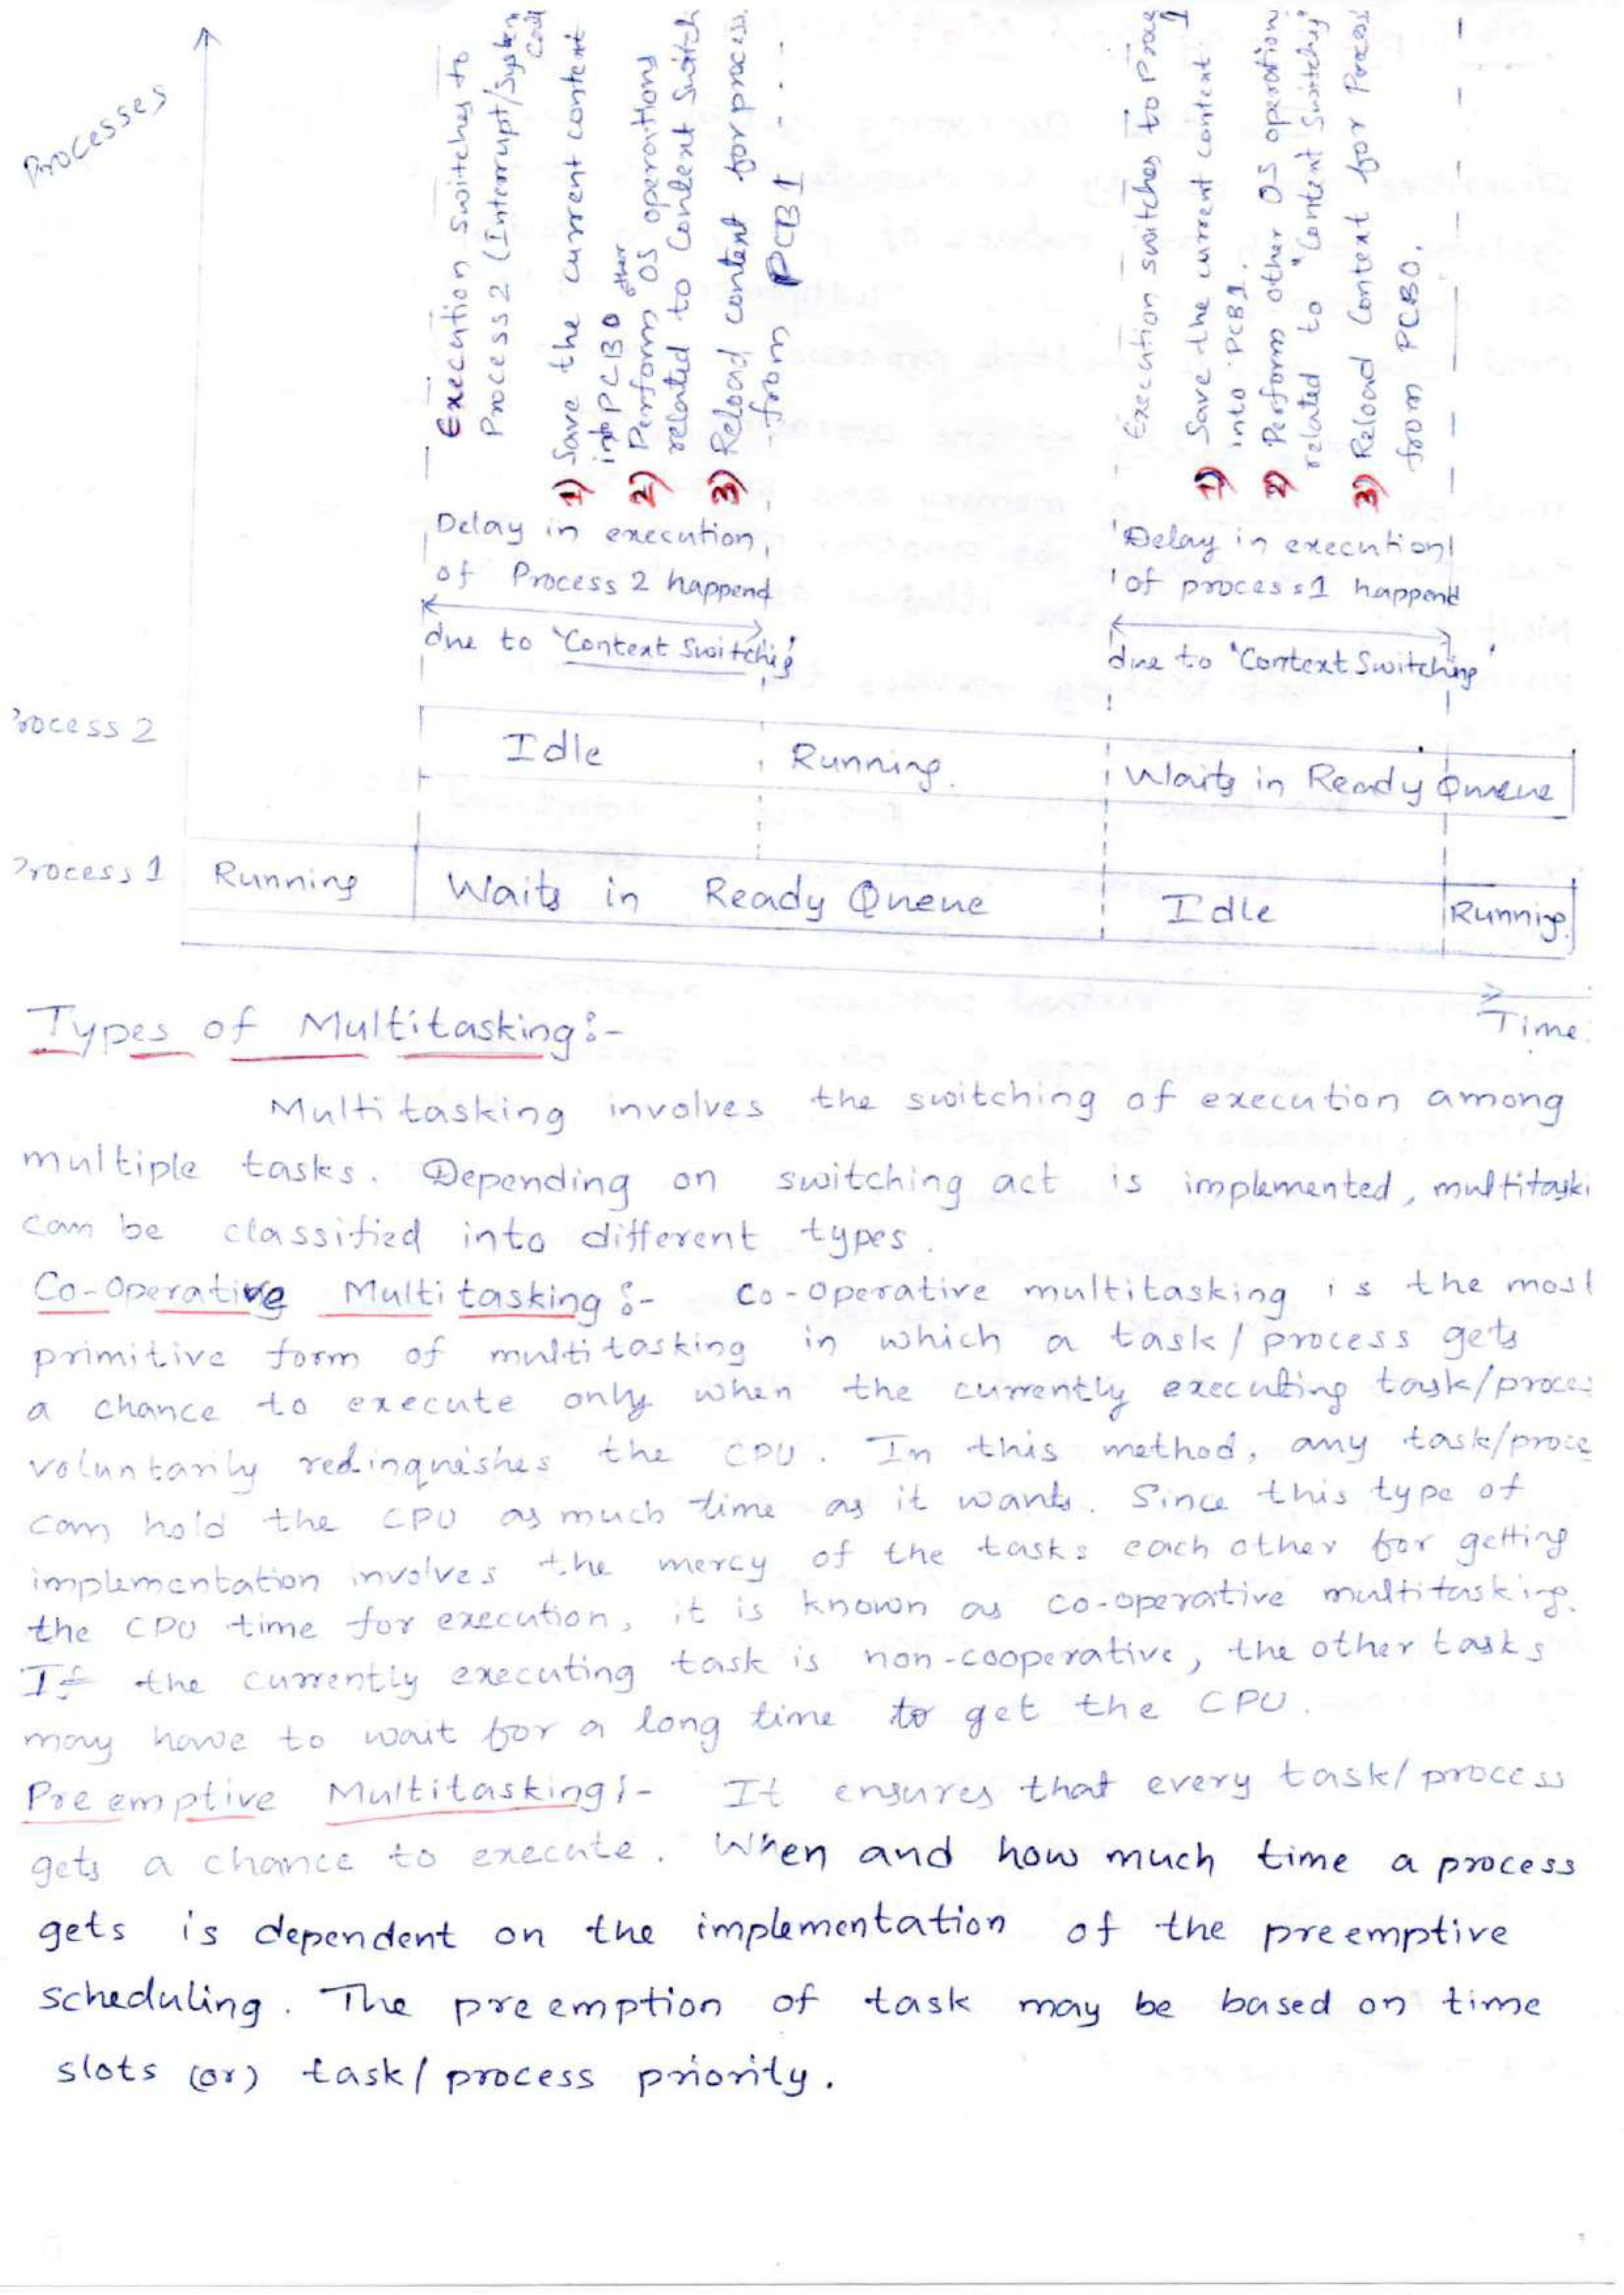 Processes
Execution switches to
Process 2 (Interrupt/System
Call
1) Save the current context
into PCB0
2) Perform other OS operations
related to Context Switch
3) Reload context for process
from PCB1
Execution switches to Proce
1
1) Save the current context
into PCB1.
2) Perform other OS operation
related to "Context Switching"
3) Reload Context for Process
from PCB0.
Delay in execution
of Process 2 happend
due to 'Context Switching'
Delay in execution
of process 1 happend
due to 'Context Switching'
rocess 2
Idle
Running.
Waits in Ready Queue
Process 1
Running
Waits in Ready Queue
Idle
Running.
Time.
Types of Multitasking:-
Multitasking involves the switching of execution among
multiple tasks. Depending on switching act is implemented, multitaski
can be classified into different types.
Co-Operative Multitasking:- Co-operative multitasking is the most
primitive form of multitasking in which a task/process gets
a chance to execute only when the currently executing task/proces
voluntarily redinquishes the CPU. In this method, any task/proce
can hold the CPU as much time as it wants. Since this type of
implementation involves the mercy of the tasks each other for getting
the CPU time for execution, it is known as co-operative multitasking.
If the currently executing task is non-cooperative, the other tasks
may have to wait for a long time to get the CPU.
Preemptive Multitasking:- It ensures that every task/process
gets a chance to execute. When and how much time a process
gets is dependent on the implementation of the preemptive
scheduling. The preemption of task may be based on time
slots (or) task/process priority.